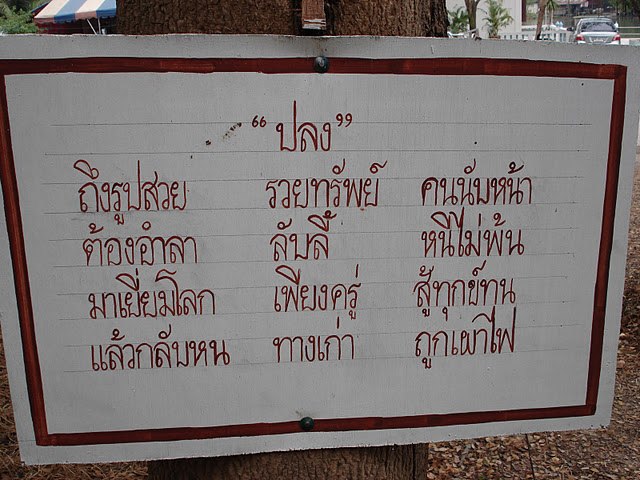 “ปลง”
ถึงรูปสวย รวยทรัพย์ คนนับหน้า
ต้องอำลา ลับลี้ หนีไม่พ้น
มาเยี่ยมโลก เพียงครู่ สู้ทุกข์ทน
แล้วกลับหน ทางเก่า ถูกเผาไฟ